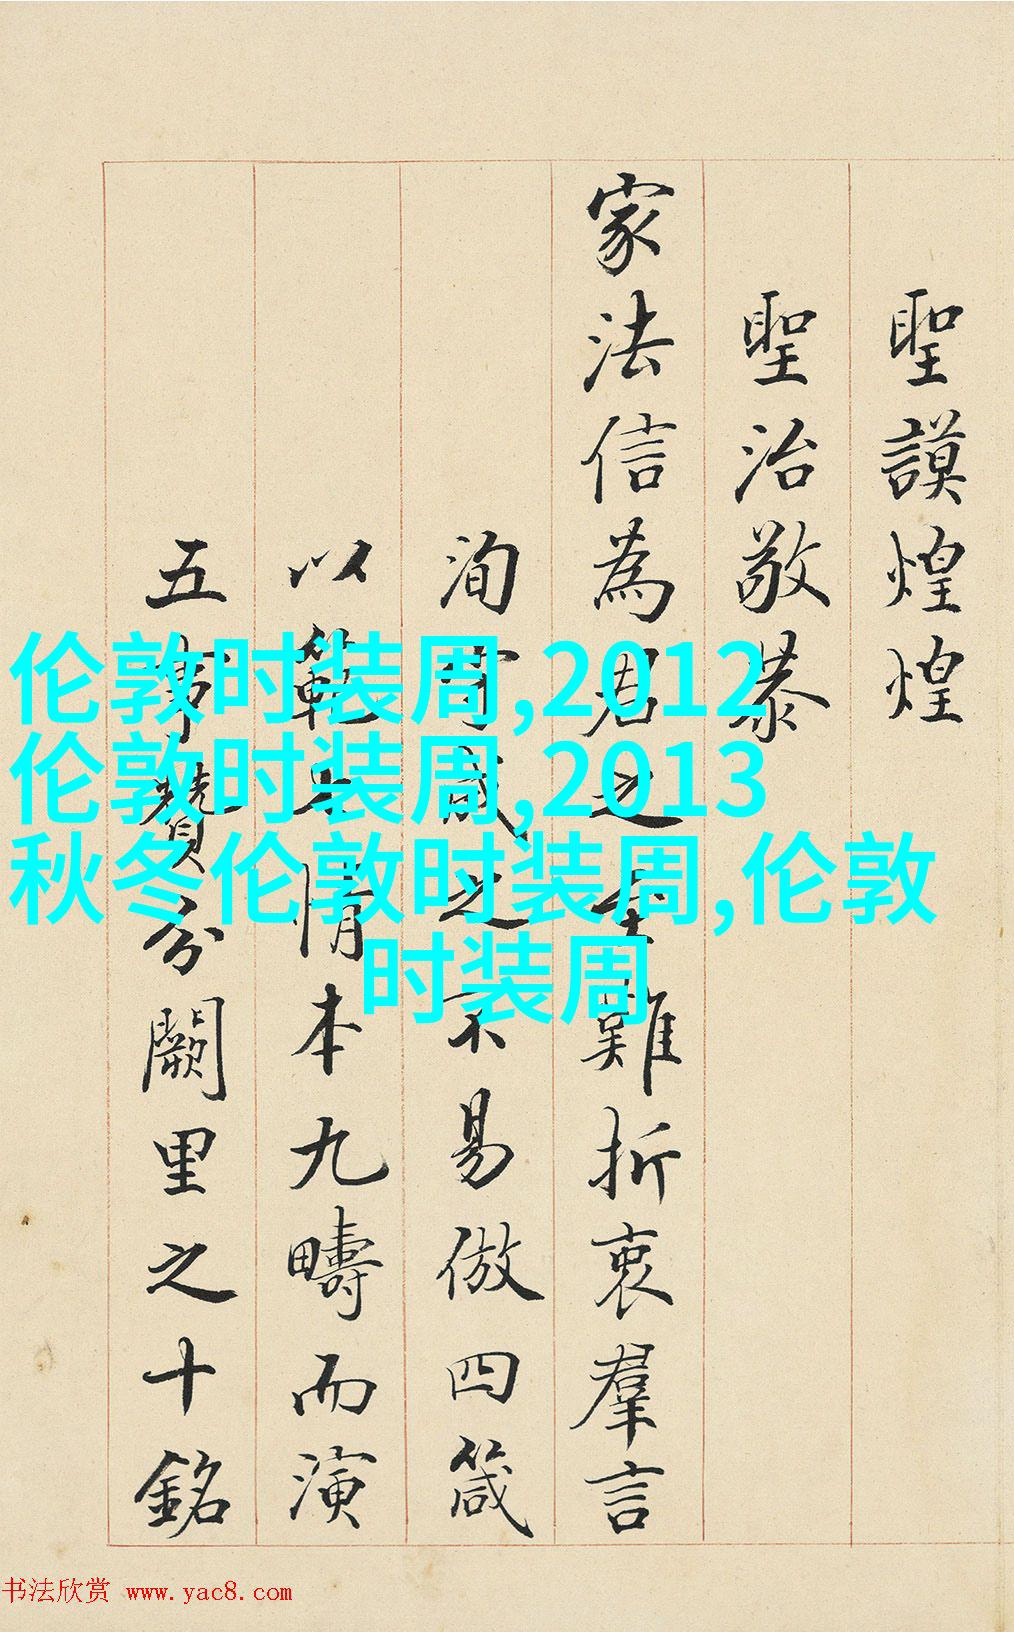 聖謨煌煌
聖治敬恭
家法信為君之至難折衷羣言
洵守成之不易倣四箴
以範性情本九疇而演
五事贊分闕里之十銘
伦敦时装周,2012
伦敦时装周,2013
秋冬伦敦时装周,伦敦
时装周
书法欣赏 www.yac8.com